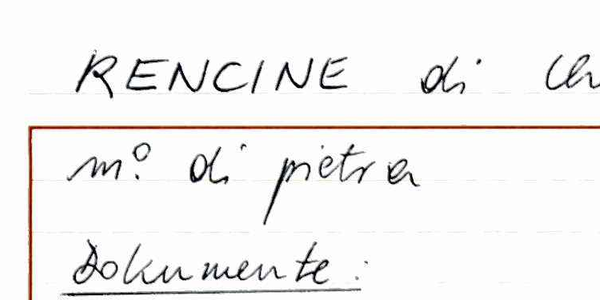 RENCINE di
m.º di pietra
Dokumente: